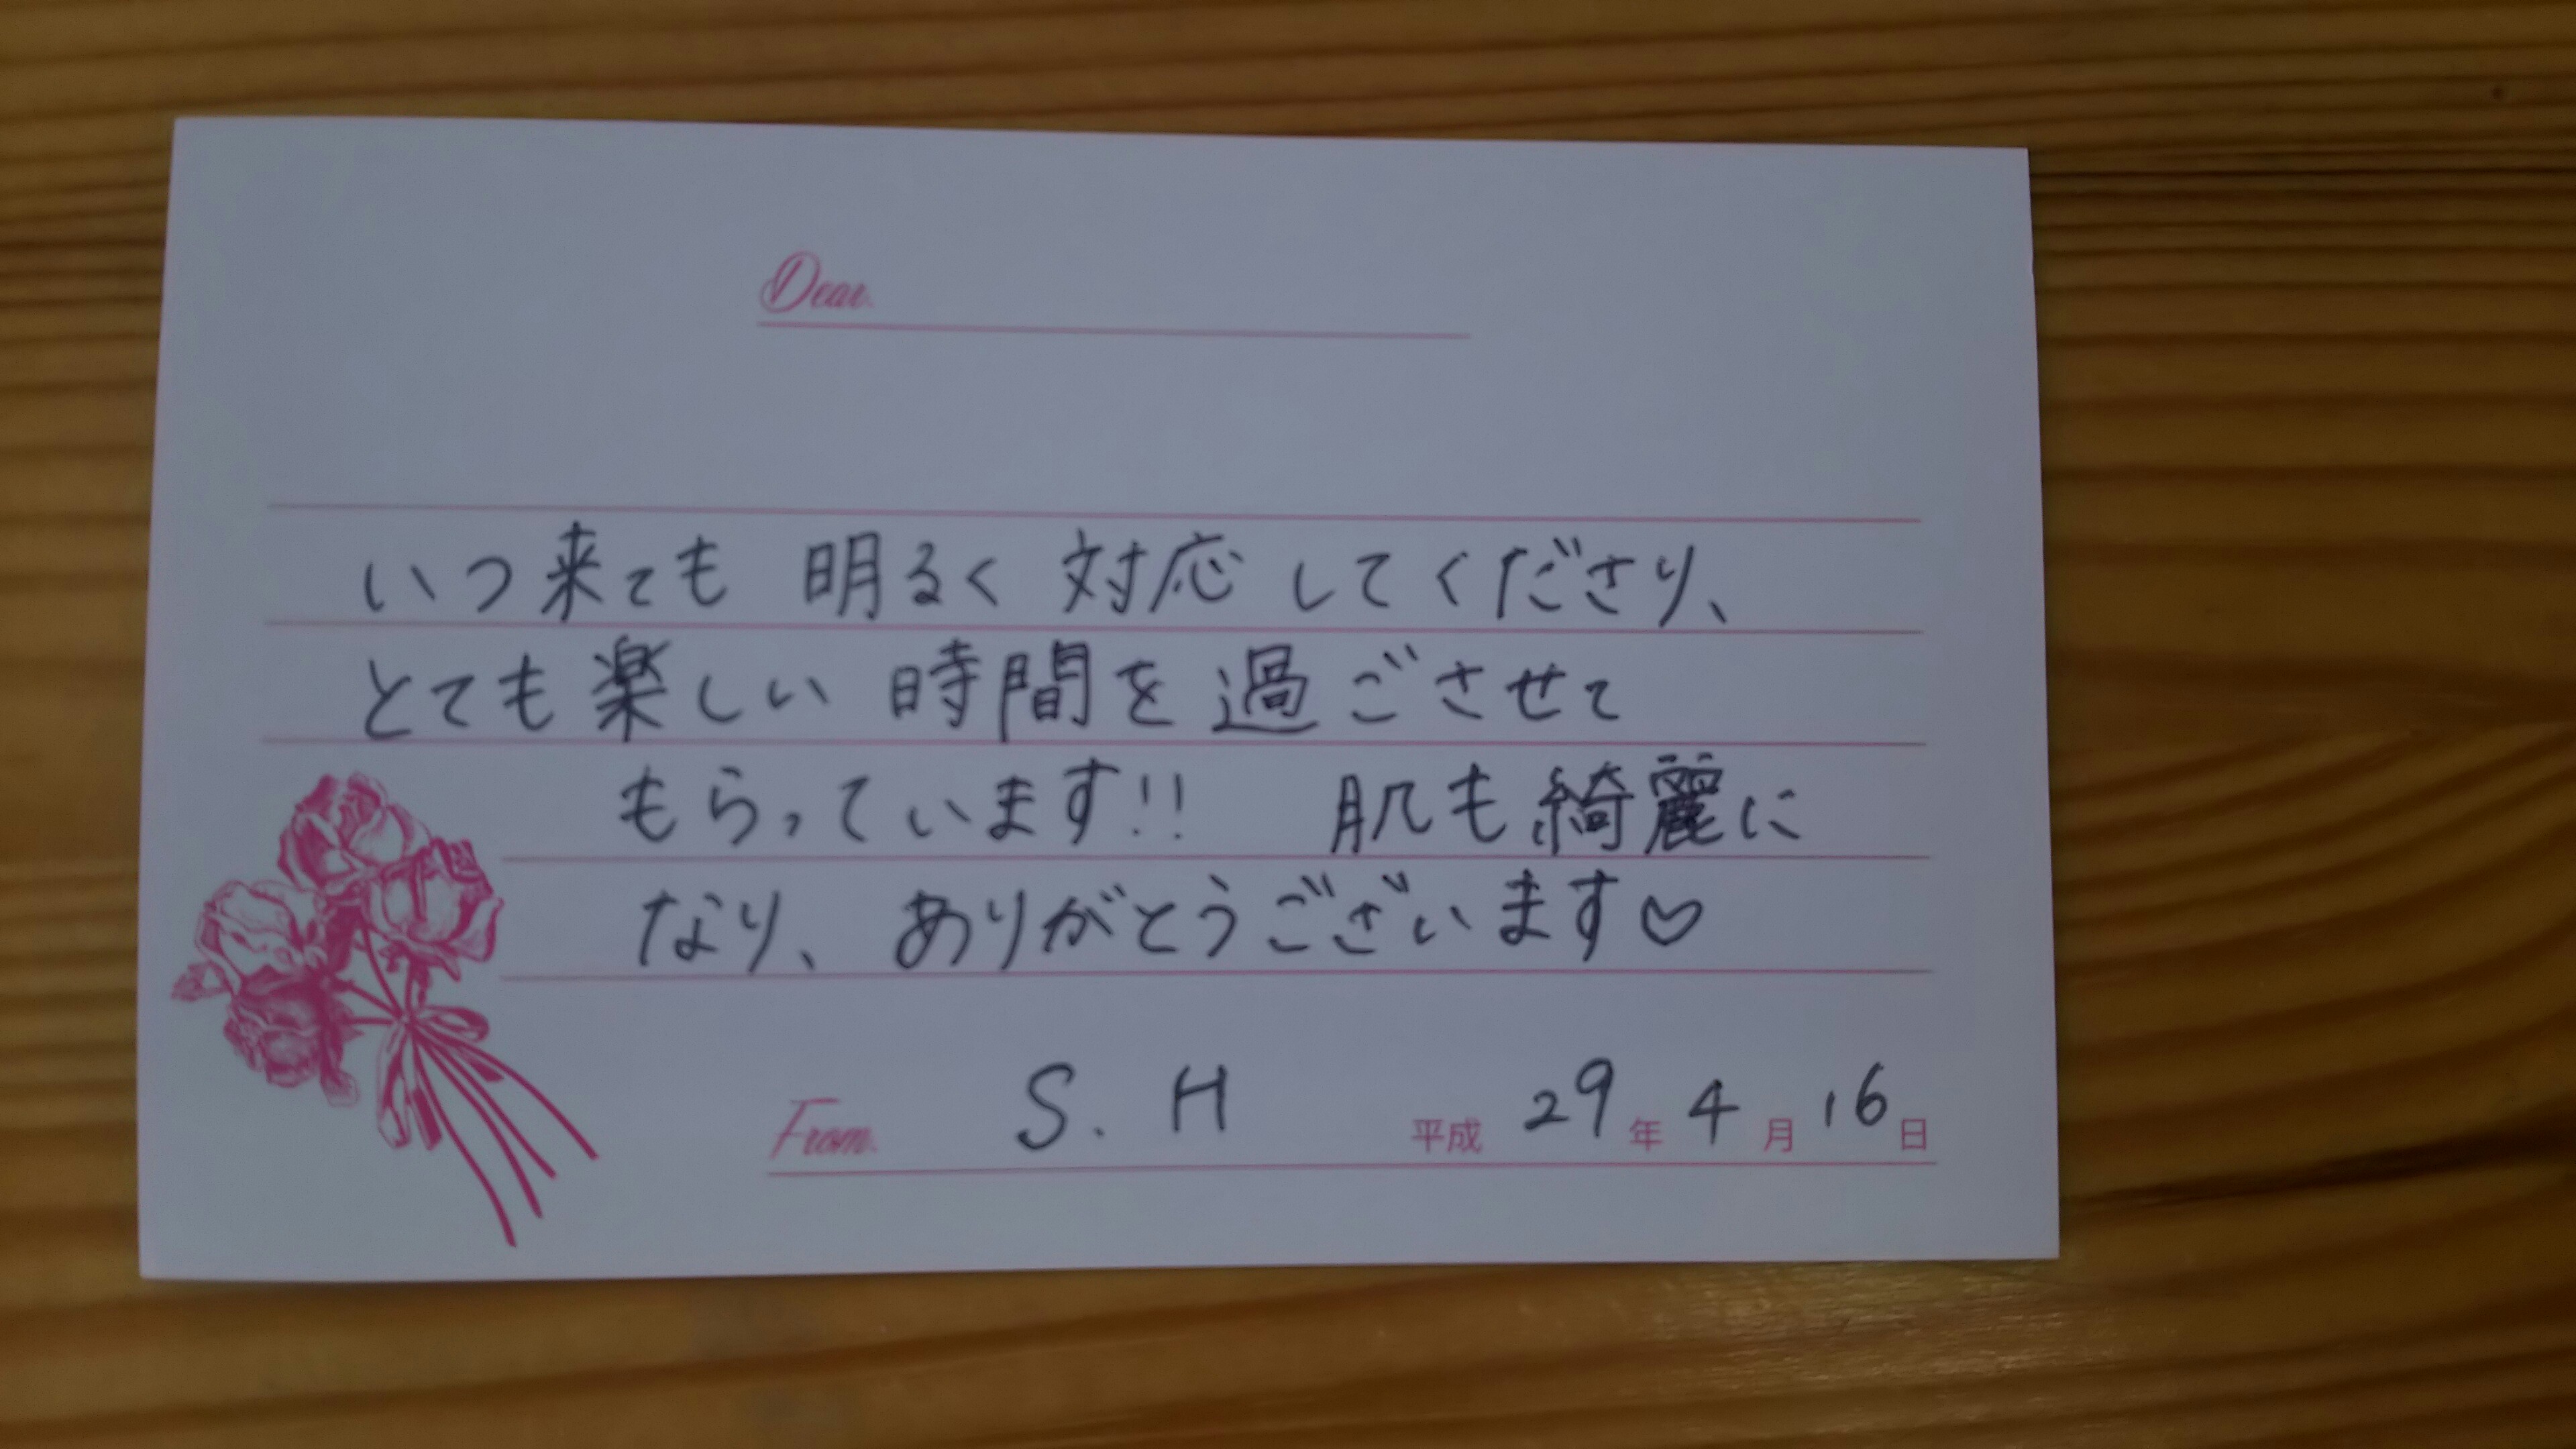 Dear.
いつ来ても 明るく 対応 してくださり、
とても楽しい 時間を 過ごさせて
もらっています!! 肌も綺麗に
なり、ありがとうございます♡
From. S. H 平成 29 年 4 月 16 日